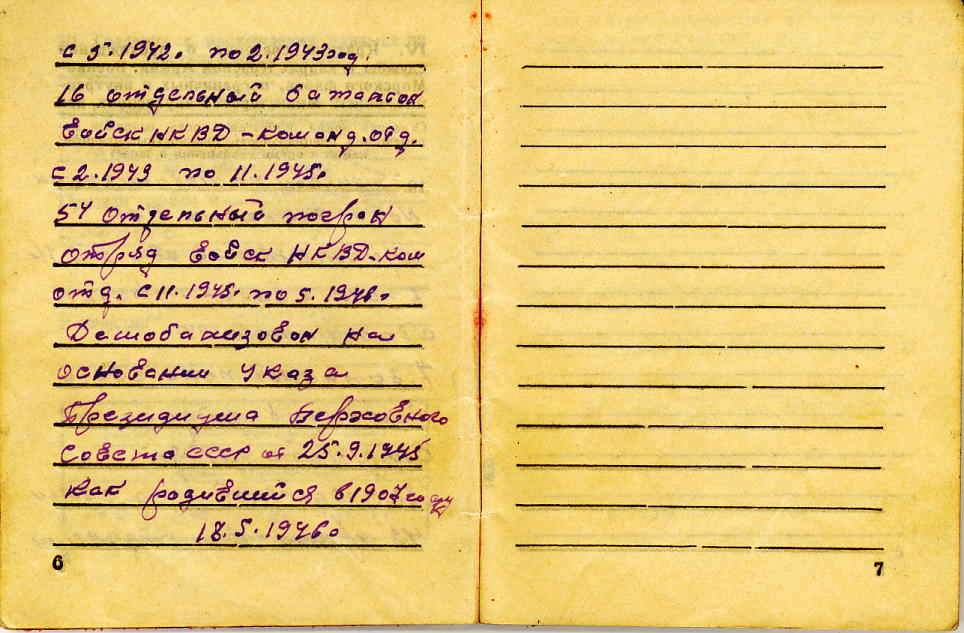 с 5.1942. по 2.1943год.
16 отдельный баталион
войск НКВД - команд. отд.
с 2.1943 по 11.1945.
54 отдельный погран
отряд войск НКВД - ком
отд. с 11.1945. по 5.1946.
Демобализован на
основании Указа
Президиума Верховного
Совета СССР от 25.9.1945
как родившийся в 1907 году
18.5.1946.
6
7